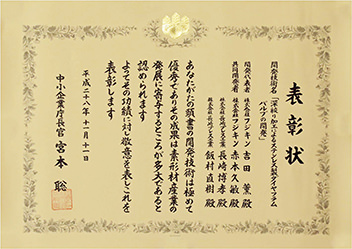 表彰状
開発技術名
「深絞り加工によるステンレス製ダイヤフラム
バルブの開発」
開発代表者
株式会社フジキン 吉田 薫殿
共同開発者
株式会社フジキン 赤木久敏殿
株式会社長崎プレス工業 長崎博孝殿
株式会社長崎プレス工業 飯村直樹殿
あなたがたの頭書の開発技術は極めて
優秀でありその成果は素形材産業の
発展に寄与するところが多大であると
認められます
よってその功績に対し敬意を表しこれを
表彰します
平成二十八年十一月十一日
中小企業庁長官 宮本 聡